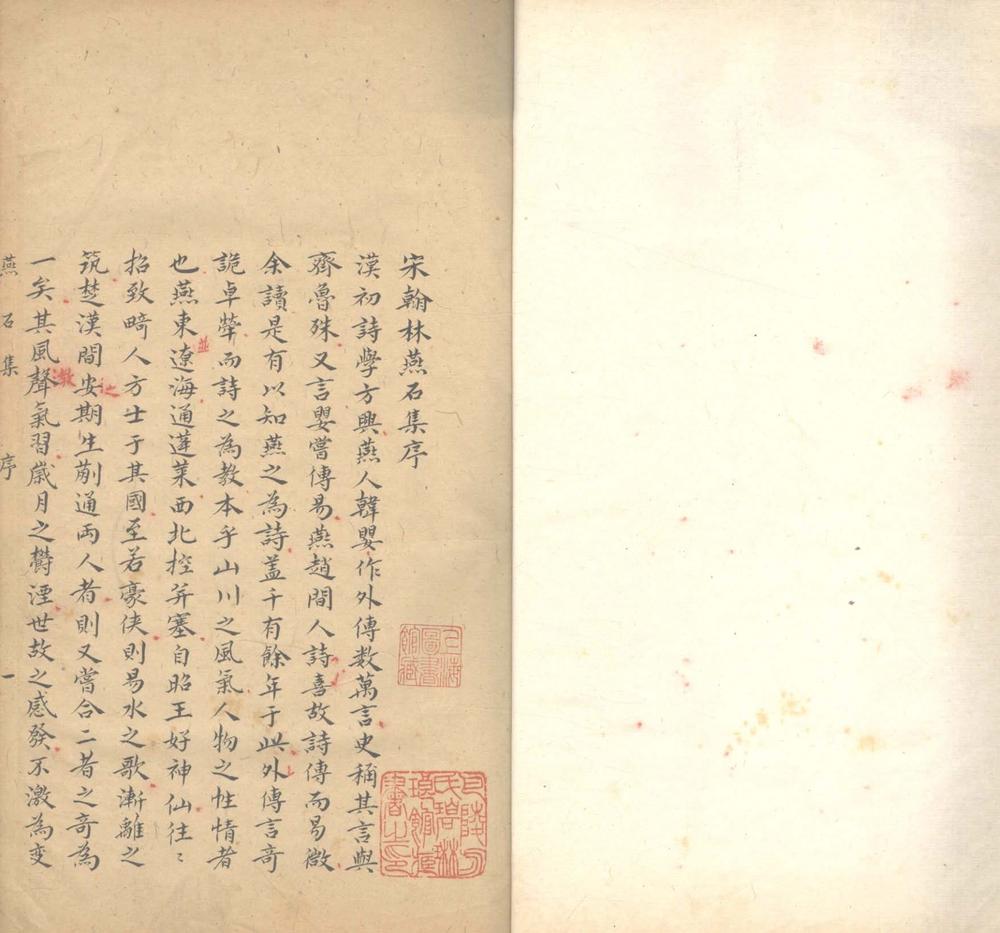 宋翰林燕石集序
漢初詩學方興燕人韓嬰作外傳数萬言史稱其言與
齊魯殊又言嬰嘗傳易燕趙間人詩喜故詩傳而易微
余讀是有以知燕之為詩蓋千有餘年于此外傳言奇
詭卓犖而詩之為教本乎山川之風氣人物之性情者
也燕東遼海通蓬萊西北控并塞自昭王好神仙往〻
並
招致畸人方士于其國至若豪俠則易水之歌漸離之
筑楚漢間安期生蒯通両人者則又嘗合二者之奇為
之
一矣其風聲氣習歲月之欝湮世故之感發不激為变
激
燕石集 序 一
上海
圖書
館藏